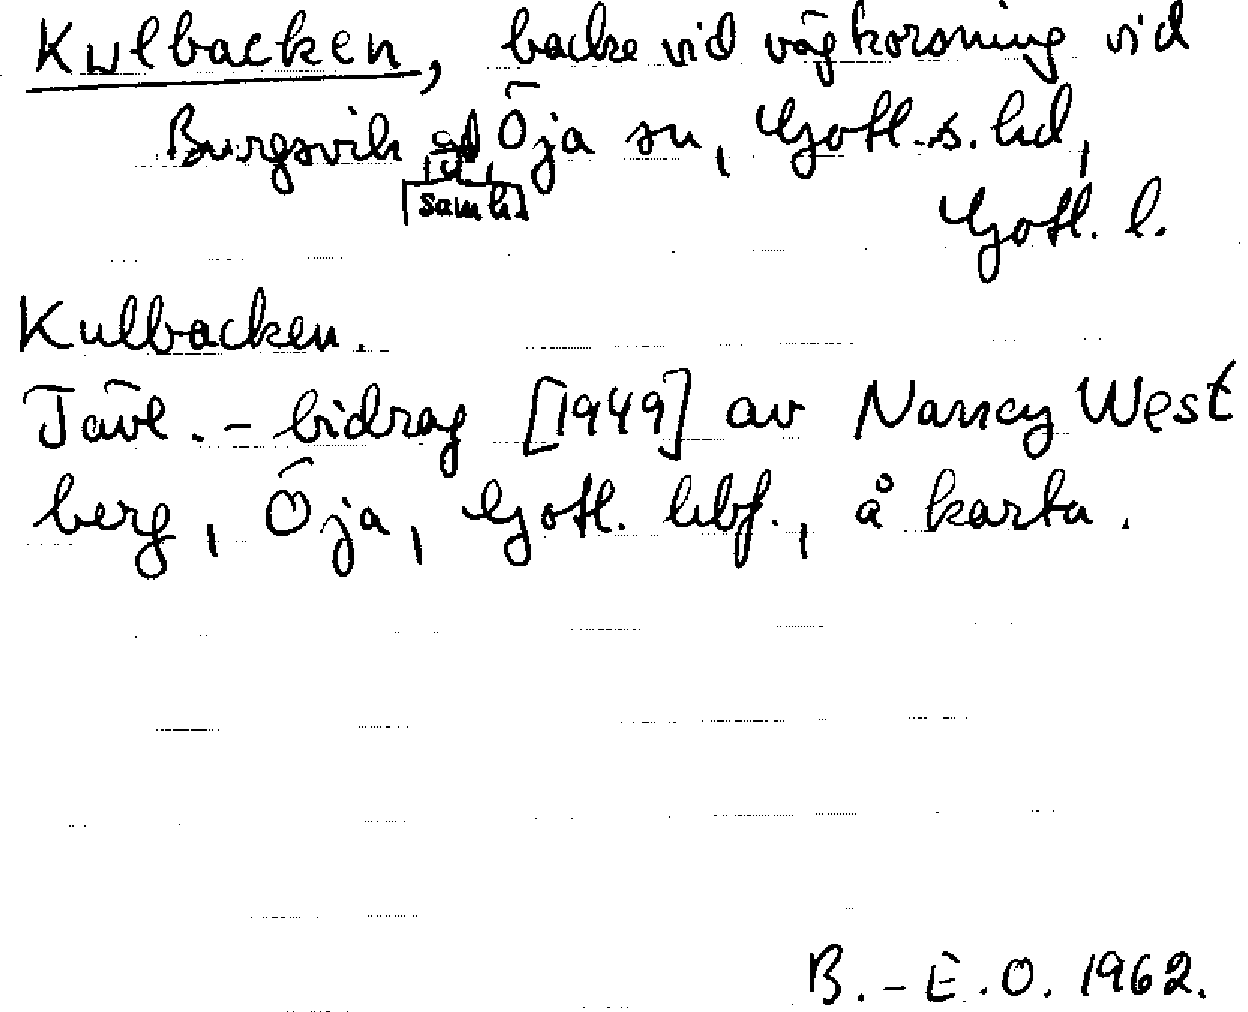 Kulbacken, backe vid vägkorsning vid
Burgsvik samh Öja sn, Gotl. s. hd,
Gotl. l.
Kulbacken.
Tävl. - bidrag [1949] av Nancy West
berg, Öja, Gotl. hbf., å karta.
B. - E. O. 1962.